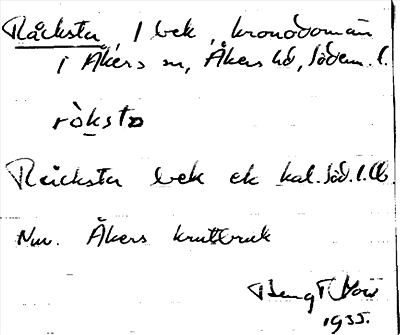 Råcksta, 1 bek, kronodomän
i Åkers sn, Åkers hd, Södem. l.
ròksta
Räcksta bek ek kal. Söd. l.
Nuv. Åkers krutbruk
Bengt
1935.